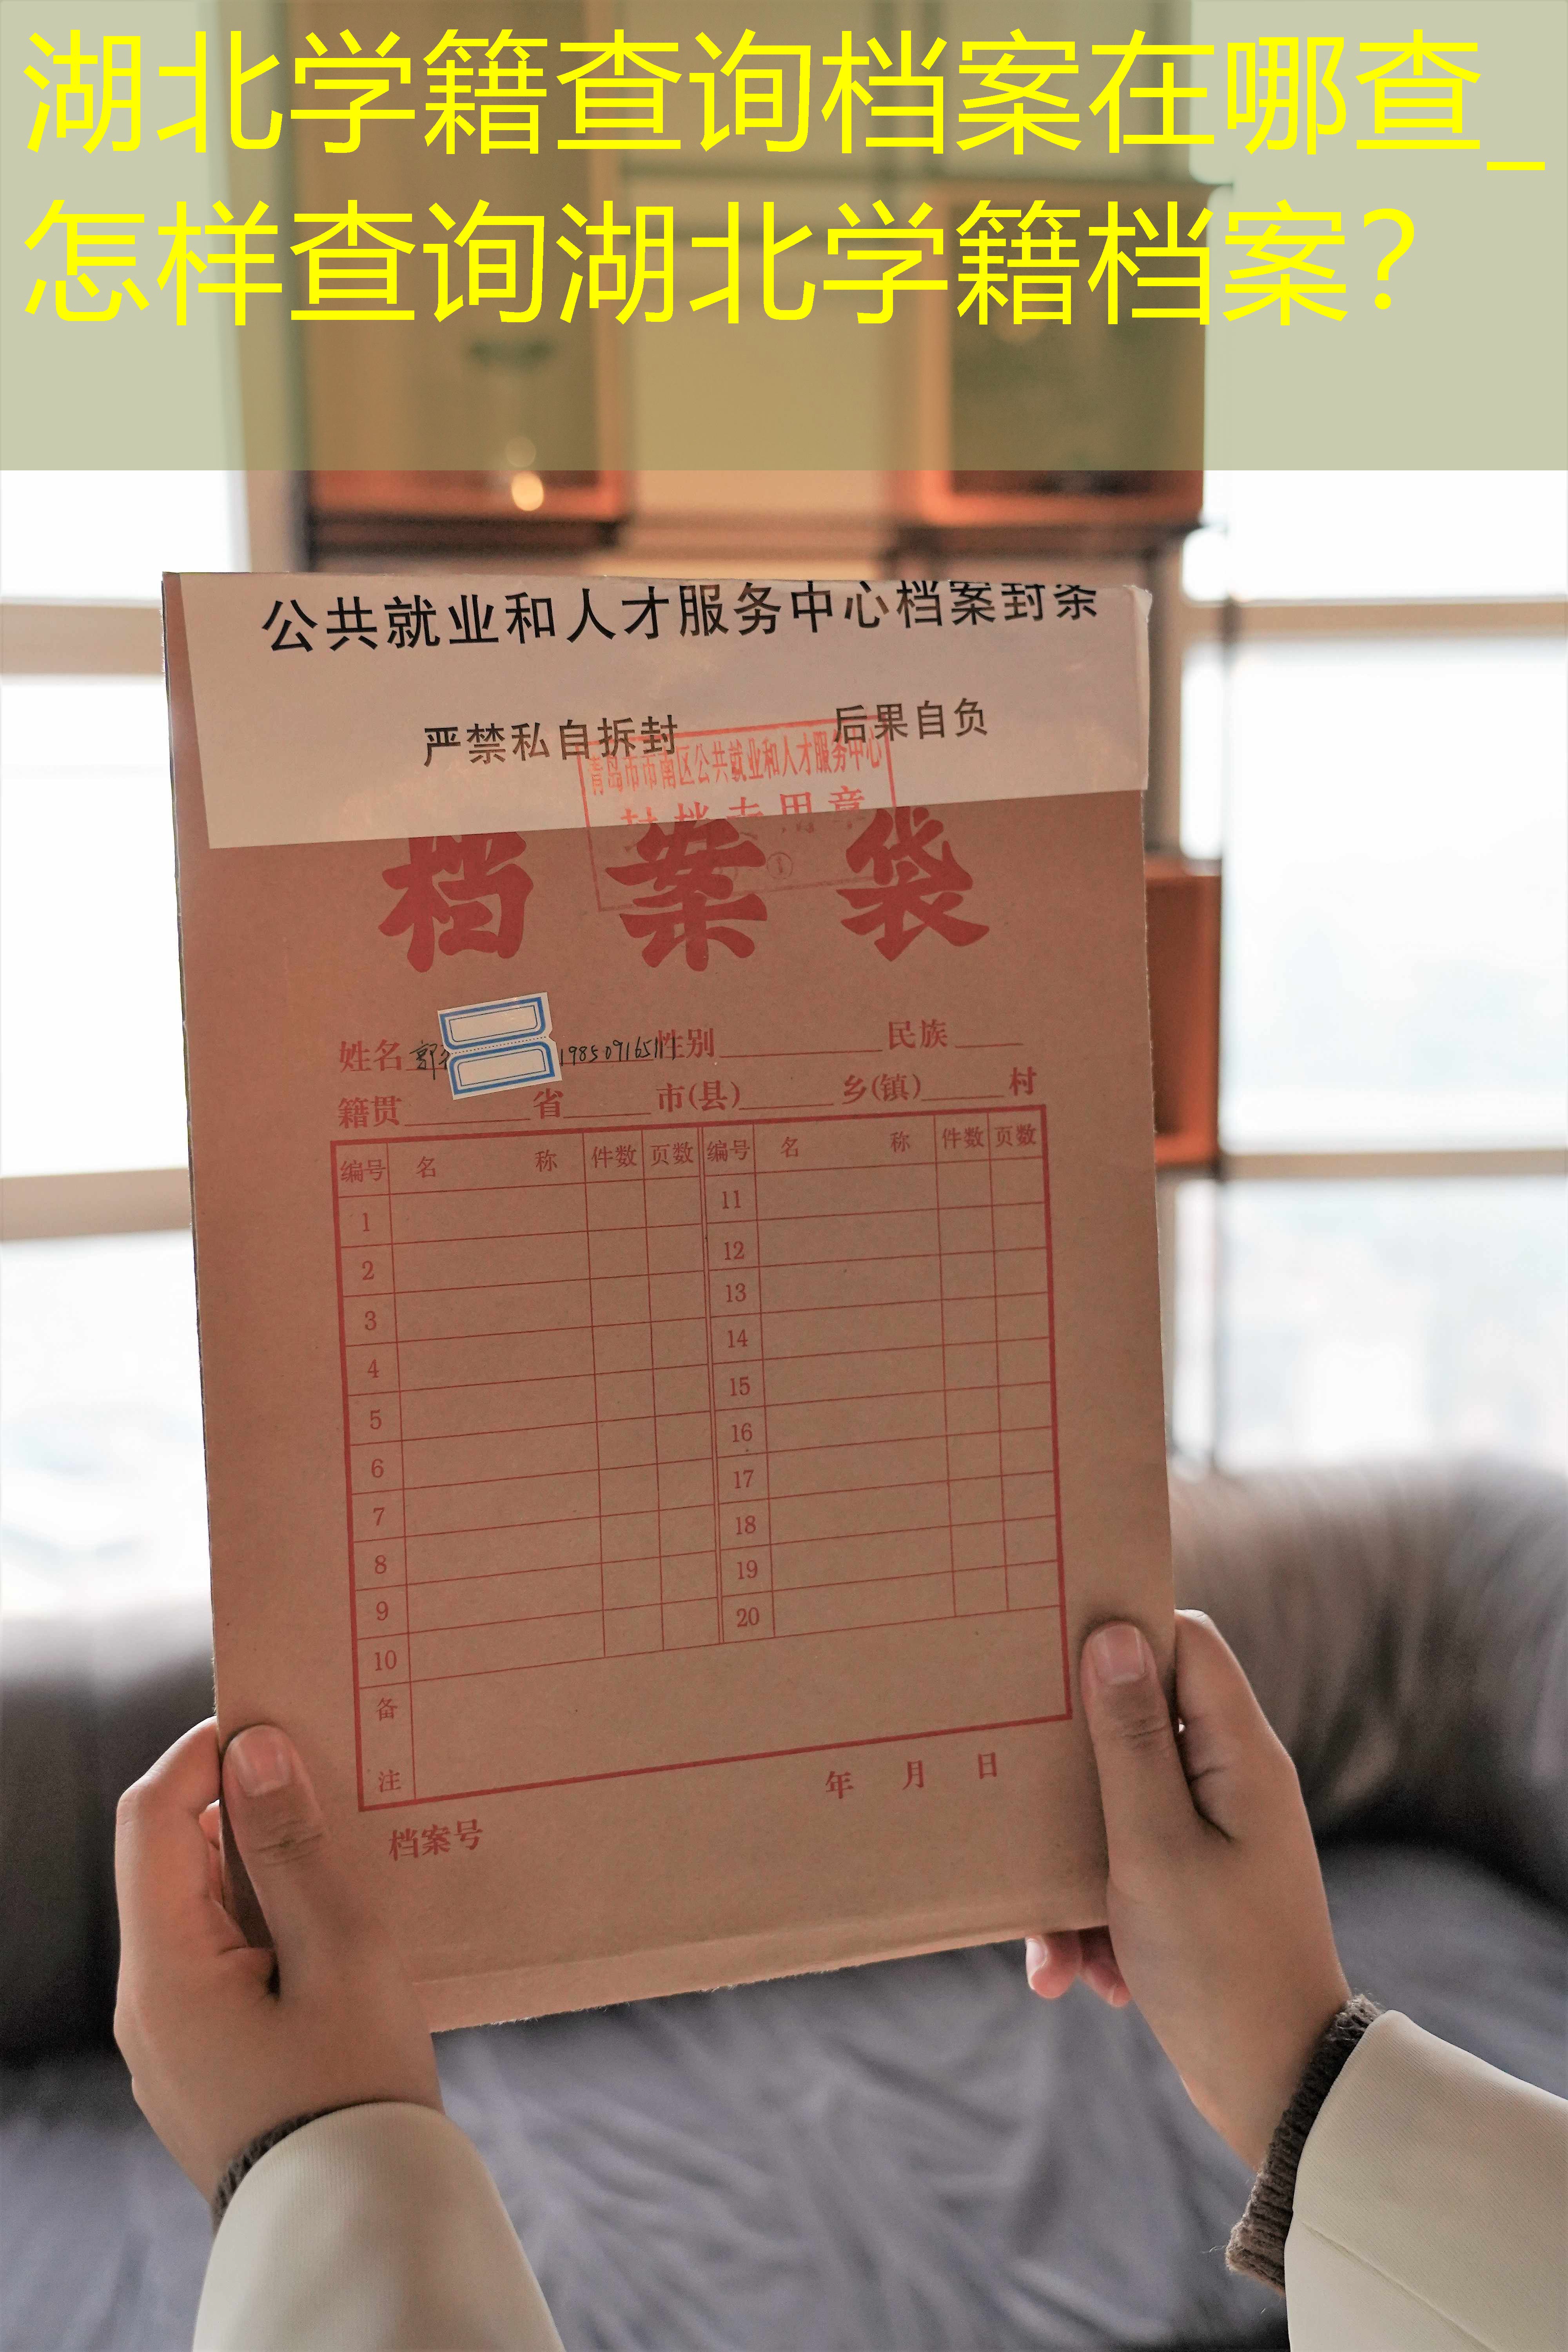 湖北学籍查询档案在哪查_
怎样查询湖北学籍档案?
公共就业和人才服务中心档案封条
严禁私自拆封 后果自负
青岛市市南区公共就业和人才服务中心
封档专用章
档案袋
姓名 郭 19850916511 性别 民族
籍贯 省 市(县) 乡(镇) 村
编号 名 称 件数 页数 编号 名 称 件数 页数
1 11
2 12
3 13
4 14
5 15
6 16
7 17
8 18
9 19
10 20
备
注
年 月 日
档案号